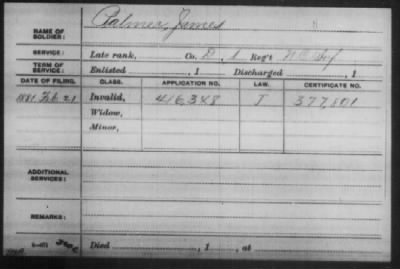 NAME OF SOLDIER: Palmer, James
SERVICE: Late rank, Co. D, 1 Reg't
TERM OF SERVICE: Enlisted , 1 Discharged , 1
DATE OF FILING. CLASS. APPLICATION NO. LAW. CERTIFICATE NO.
1881 Feb. 21 Invalid, 416348 377,801
Widow,
Minor,
ADDITIONAL SERVICES:
REMARKS:
Died , 1 , at